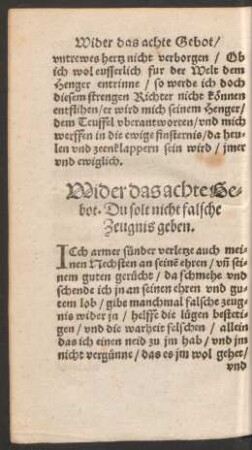 Wider das achte Gebot/
vntrewes hertz nicht verborgen / Ob
ich wol eusserlich fur der Welt dem
Henger entrinne / so werde ich doch
diesem strengen Richter nicht können
entflihen/er wird mich seinem Henger/
dem Teuffel vberantworten/vnd mich
werffen in die ewige finsternis/da heu-
len vnd zeenklappern sein wird / jmer
vnd ewiglich.
Wider das achte Ge-
bot. Du solt nicht falsche
Zeugnis geben.
ICch armer sünder verletze auch mei-
nen Nechsten an seinē ehren / vñ sei-
nem guten gerücht / da schmehe vnd
schende ich jn an seinen ehren vnd gu-
tem lob / gibe manchmal falsche zeug
nis wider jn / helffe die lügen besteti-
gen / vnd die warheit felschen / allein
das ich einen neid zu jm hab / vnd jm
nicht vergünne / das es jm wol gehet/
vnd